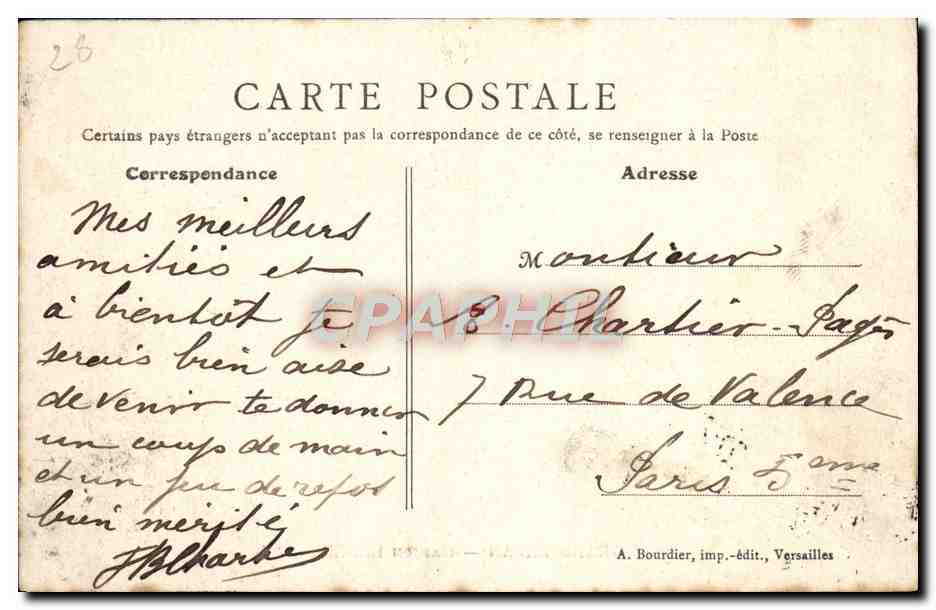 28
CARTE POSTALE
Certains pays étrangers n'acceptant pas la correspondance de ce côté, se renseigner à la Poste
Correspondance
Mes meilleurs
amitiés et
à bientôt je
serais bien aise
de venir te donner
un coup de main
et un peu de repos
bien mérité
Adresse
Monsieur
E. Chartier-Pagès
7 Rue de Valence
Paris 5eme
CPAPHIL
A. Bourdier, imp.-édit., Versailles